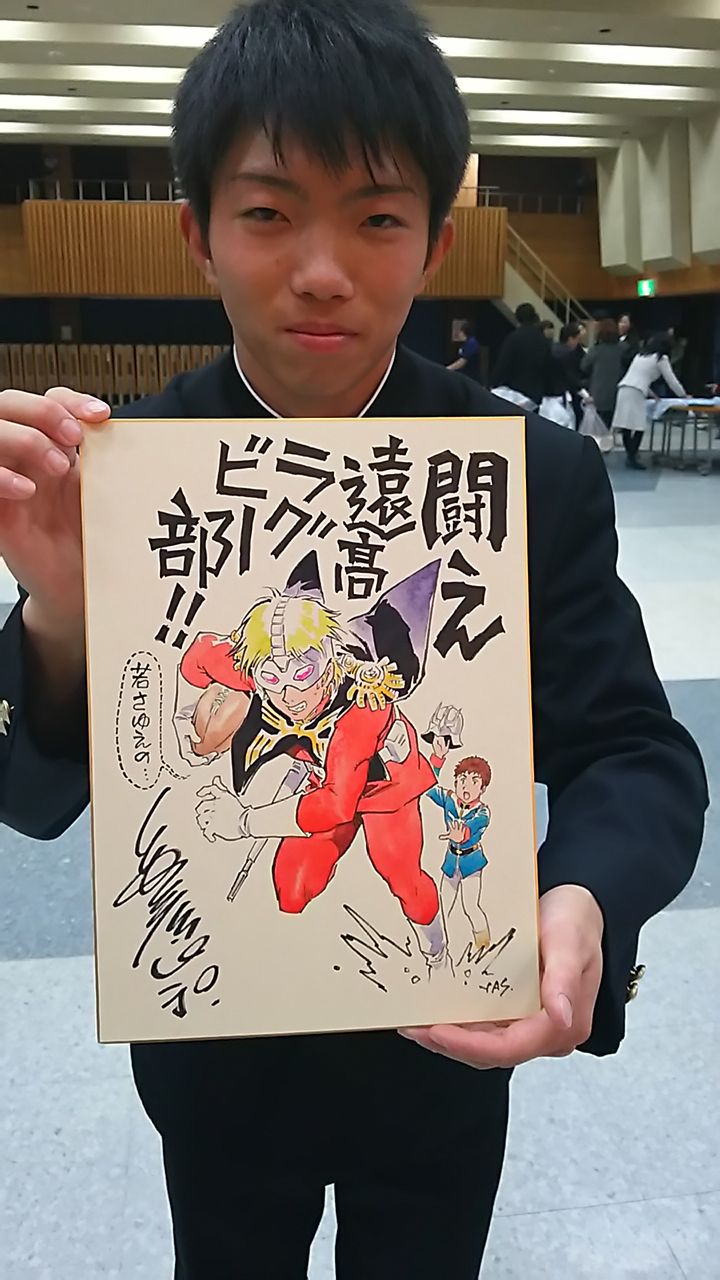 闘え
遠高
ラグ
ビー
部!!
若さゆえの…
YAS.